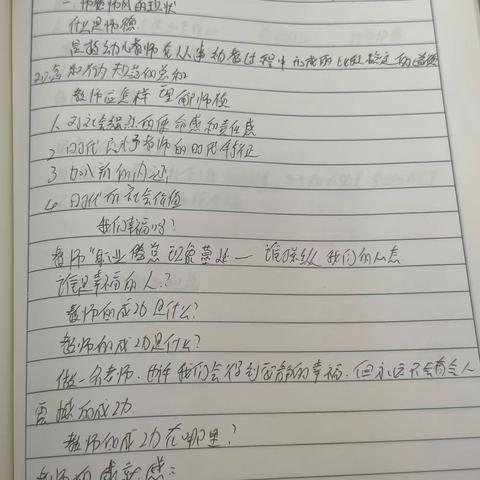 一.师德师风的现状
1.什么是师德
是指幼儿教师在从事幼教过程中形成的比较稳定的道德
观念和行为规范的总和
教师应怎样理解师德
1.对社会强烈的使命感和责任感
2.时代赋予教师的时代特征
3.加入新的内涵
4.时代的社会价值
我们幸福吗?
教师"职业倦怠
我们的心态
谁是幸福的人?
教师的成功是什么?
教师的成功是什么?
做一名教师.也许我们会得到安静的幸福.但永远不会有令人
震撼的成功.
教师的成功在哪里?
教师的感新感: